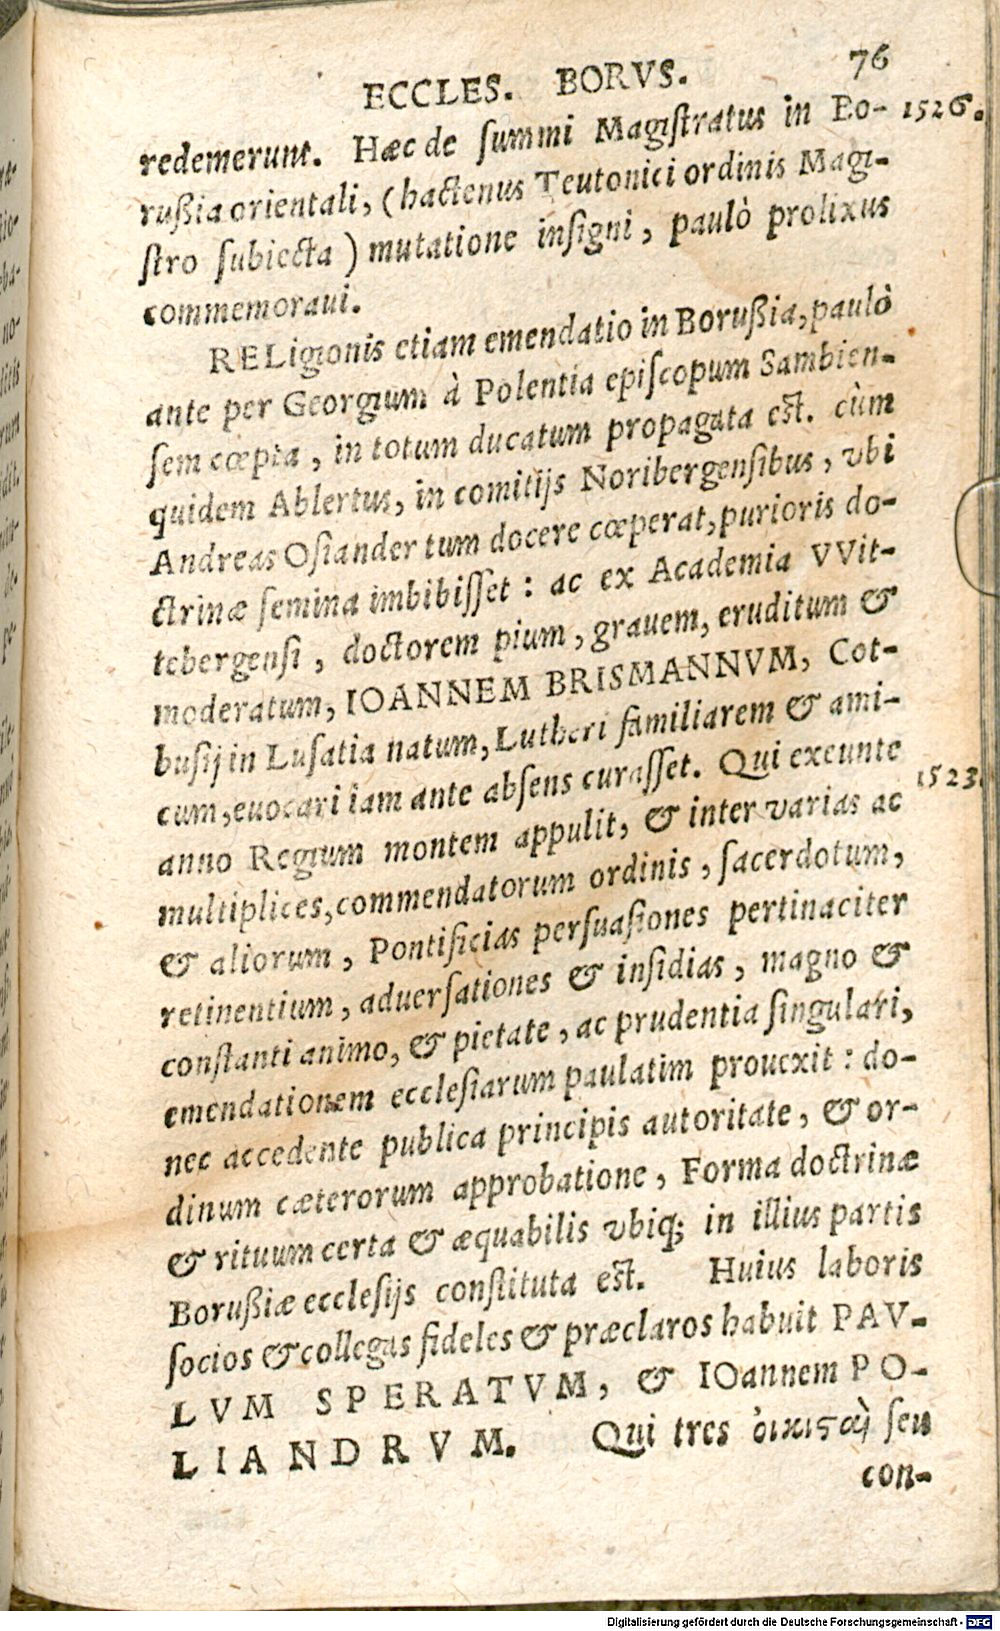 ECCLES. BORVS. 76
redemerunt. Hæc de ſummi Magiſtratus in Bo- 1526.
rußia orientali, (hactenus Teutonici ordinis Magi-
ſtro ſubiecta) mutatione inſigni, paulò prolixus
commemoraui.
RELigionis etiam emendatio in Borußia, paulò
ante per Georgium à Polentia epiſcopum Sambien-
ſem cœpta, in totum ducatum propagata eſt. cùm
quidem Ablertus, in comitijs Noribergenſibus, vbi
Andreas Oſiander tum docere cœperat, purioris do-
ctrinæ ſemina imbibiſſet: ac ex Academia VVit-
tebergenſi, doctorem pium, grauem, eruditum &
moderatum, IOANNEM BRISMANNVM, Cot-
buſij in Luſatia natum, Lutheri familiarem & ami-
cum, euocari iam ante abſens curaſſet. Qui exeunte
anno Regium montem appulit, & inter varias ac 1523.
multiplices, commendatorum ordinis, ſacerdotum,
& aliorum, Pontificias perſuaſiones pertinaciter
retinentium, aduerſationes & inſidias, magno &
conſtanti animo, & pietate, ac prudentia ſingulari,
emendationem eccleſiarum paulatim prouexit: do-
nec accedente publica principis autoritate, & or-
dinum cæterorum approbatione, Forma doctrinæ
& rituum certa & æquabilis vbiq; in illius partis
Borußiæ eccleſijs conſtituta eſt. Huius laboris
ſocios & collegas fideles & præclaros habuit PAV-
LVM SPERATVM, & IOannem PO-
LIANDRVM. Qui tres ὀικιϛαὶ ſeu
con-
Digitalisierung gefördert durch die Deutsche Forschungsgemeinschaft - DFG